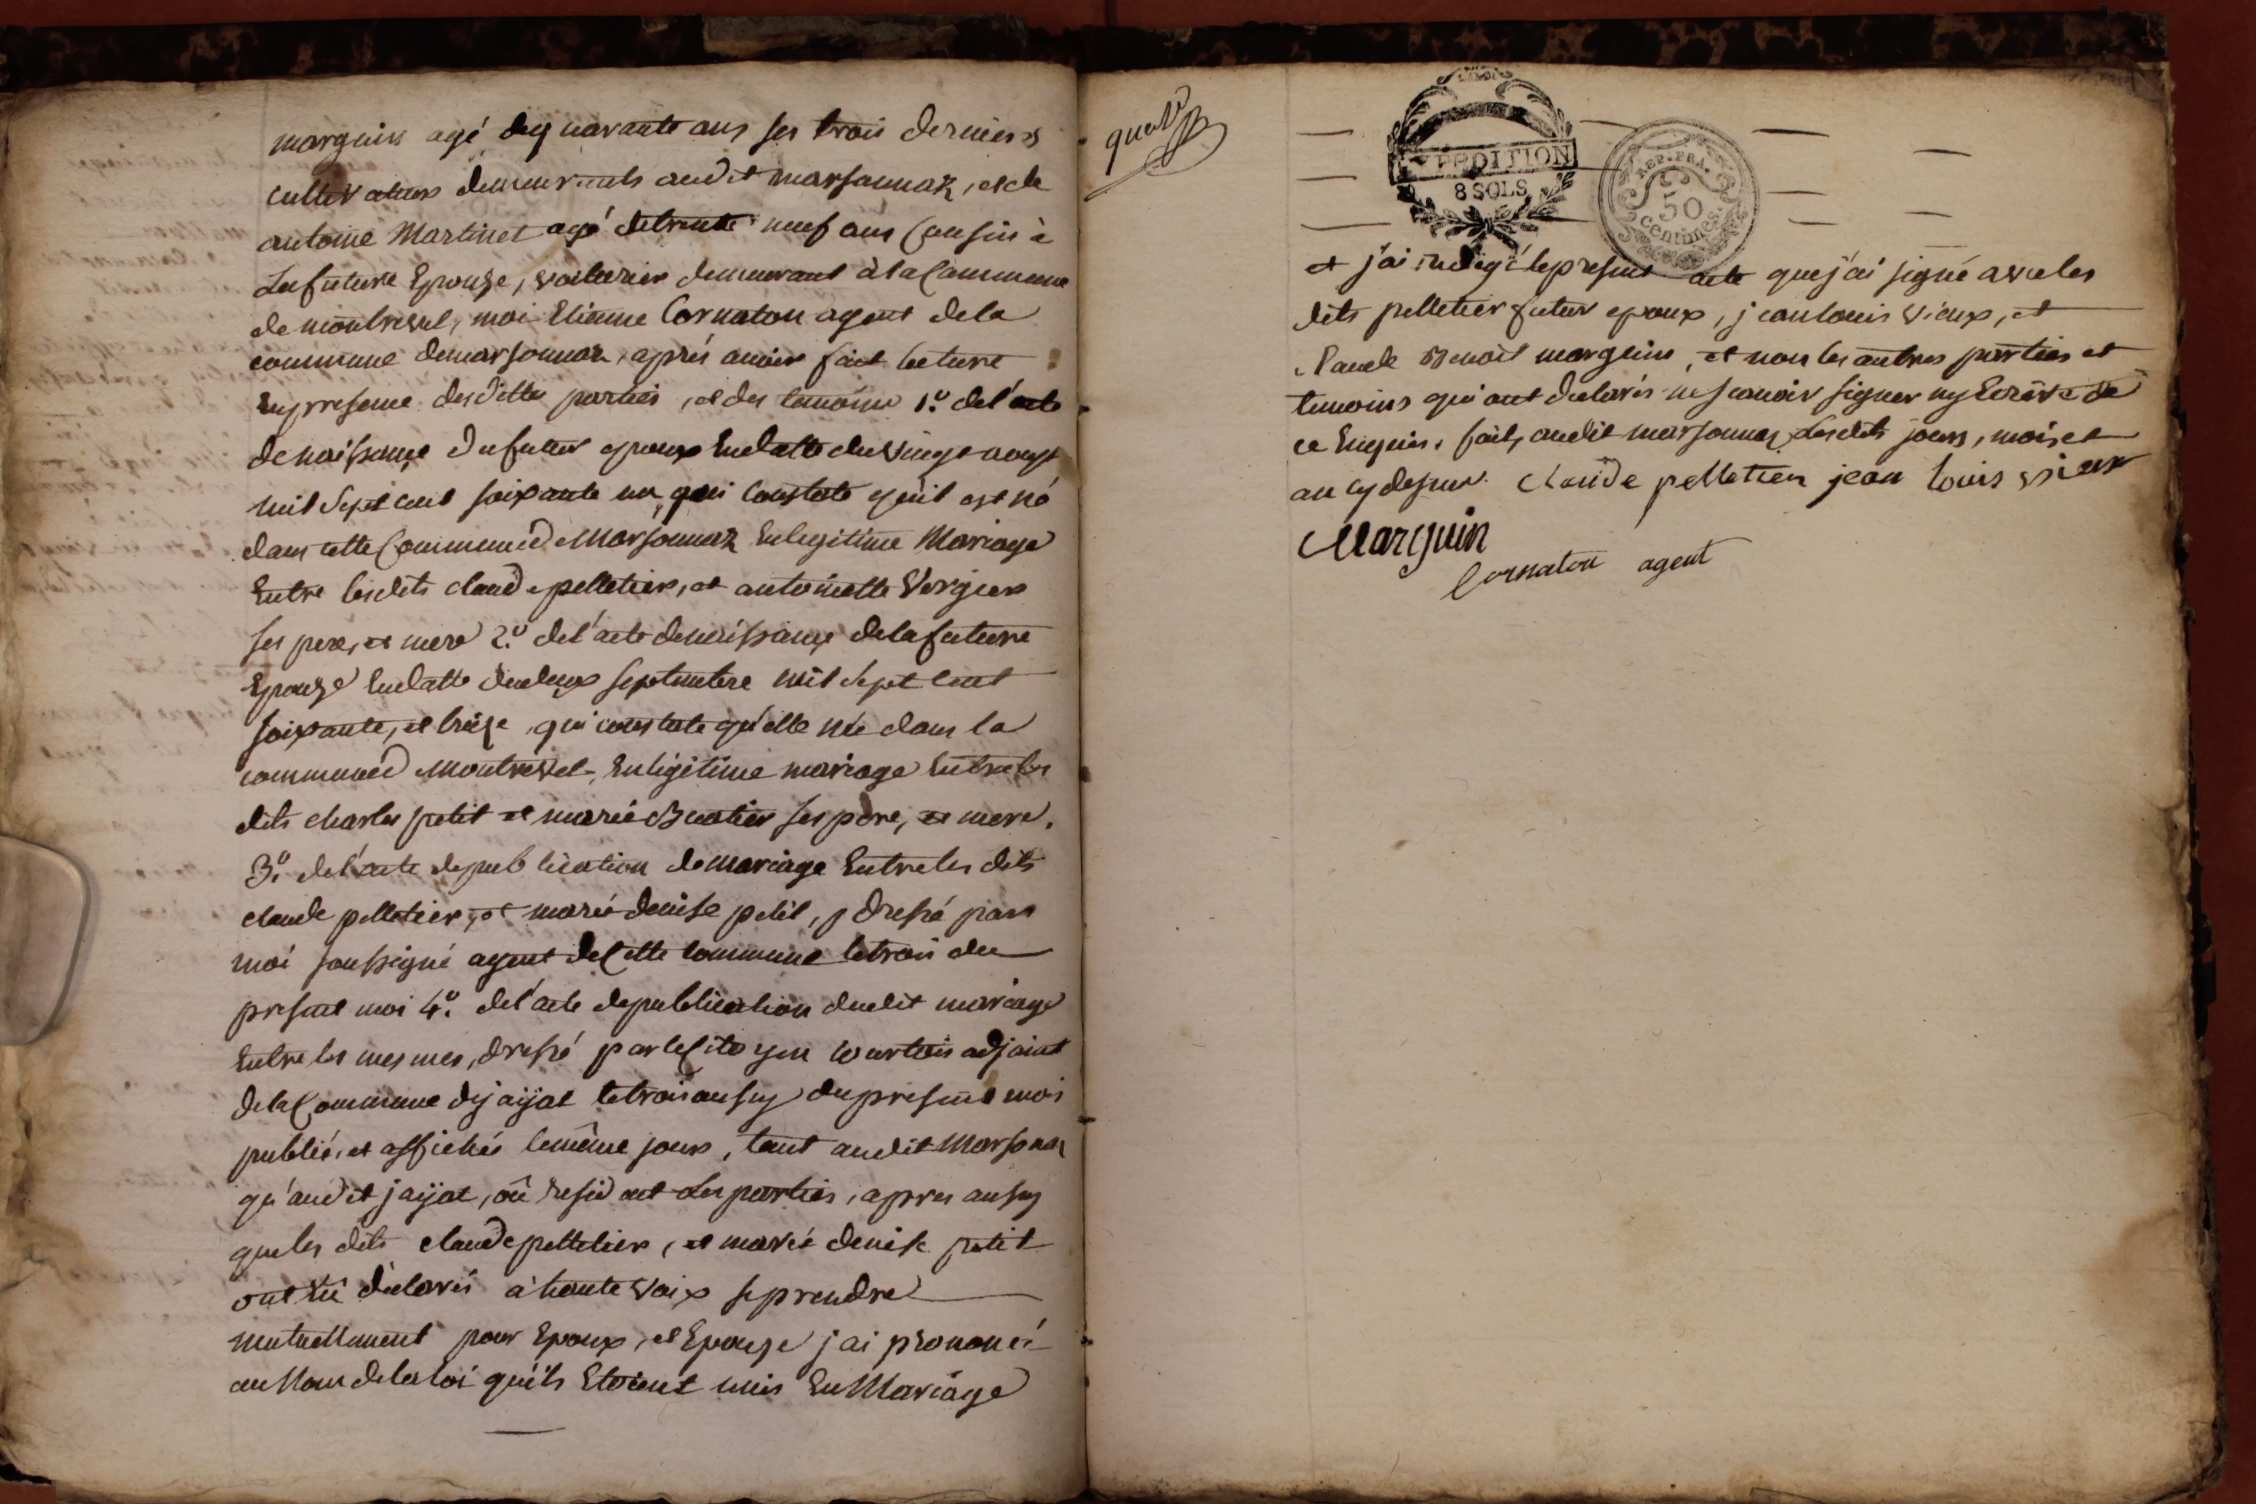 marguin agé de quarante ans ses trois derniers
cultivateurs demeurants audit marsonnaz, et de
antoine Martinet agé de trente neuf ans Cousin à
La future Epouze, voiturier demeurant à la Commune
de montrevel, moi Etienne Cornaton agent de la
commune de marsonnaz, aprés avoir fait lecture
En presence des dittes parties, et des temoins 1.º de l'acte
de naissance du futur epoux En datte du vingt aoust
mil sept cent soixante un, qui Constate qu'il est né
dans cette Commune de Marsonnaz En legitime Mariage
Entre lesdits claude pelletier, et antoinette Vergier
ses pere, et mere 2.º de l'acte de naissance de la future
Epouze En datte du deux septembre mil sept cent
soixante, et treize, qui constate qu'elle née dans la
commune de Montrevel, En ligitime mariage Entre les
dits charles petit et marie Buatier ses pere, et mere.
3.º de l'acte de publication de mariage Entre les dits
claude pelletier, et marie denise petit, dressé par
moi soussigné agent de Cette Commune le trois du
present moi 4.º de l'acte de publication dudit mariage
Entre les mesmes, dressé par le Citoyen Courtois adjoint
de la Commune de jaÿat le trois aussy du present mois
publié, et affichés le même jour, tant audit Marsonnaz
qu'audit jaÿat, où resident Les parties, apres aussy
que les dits claude pelletier, et marie denise petit
ont Eu déclarés à haute Voix se prendre
mutuellement pour Epoux, et Epouze j'ai prononcé
au Nom de la loi qu'ils Etoient unis En Mariage
EXPEDITION
8 SOLS
REP. FRA.
50
Centimes.
et j'ai redigé le present acte que j'ai signé avec les
dits pelletier futur epoux, jean louis vieux, et
Claude Benoit marguin, et non les autres parties et
temoins qui ont declarés ne scavoir signer ny Ecrire de
ce Enquis. fait, audit marsonnaz Lesdits jours, mois et
an cy dessus. Claude pelletier jean louis vieux
Marguin
Cornaton agent